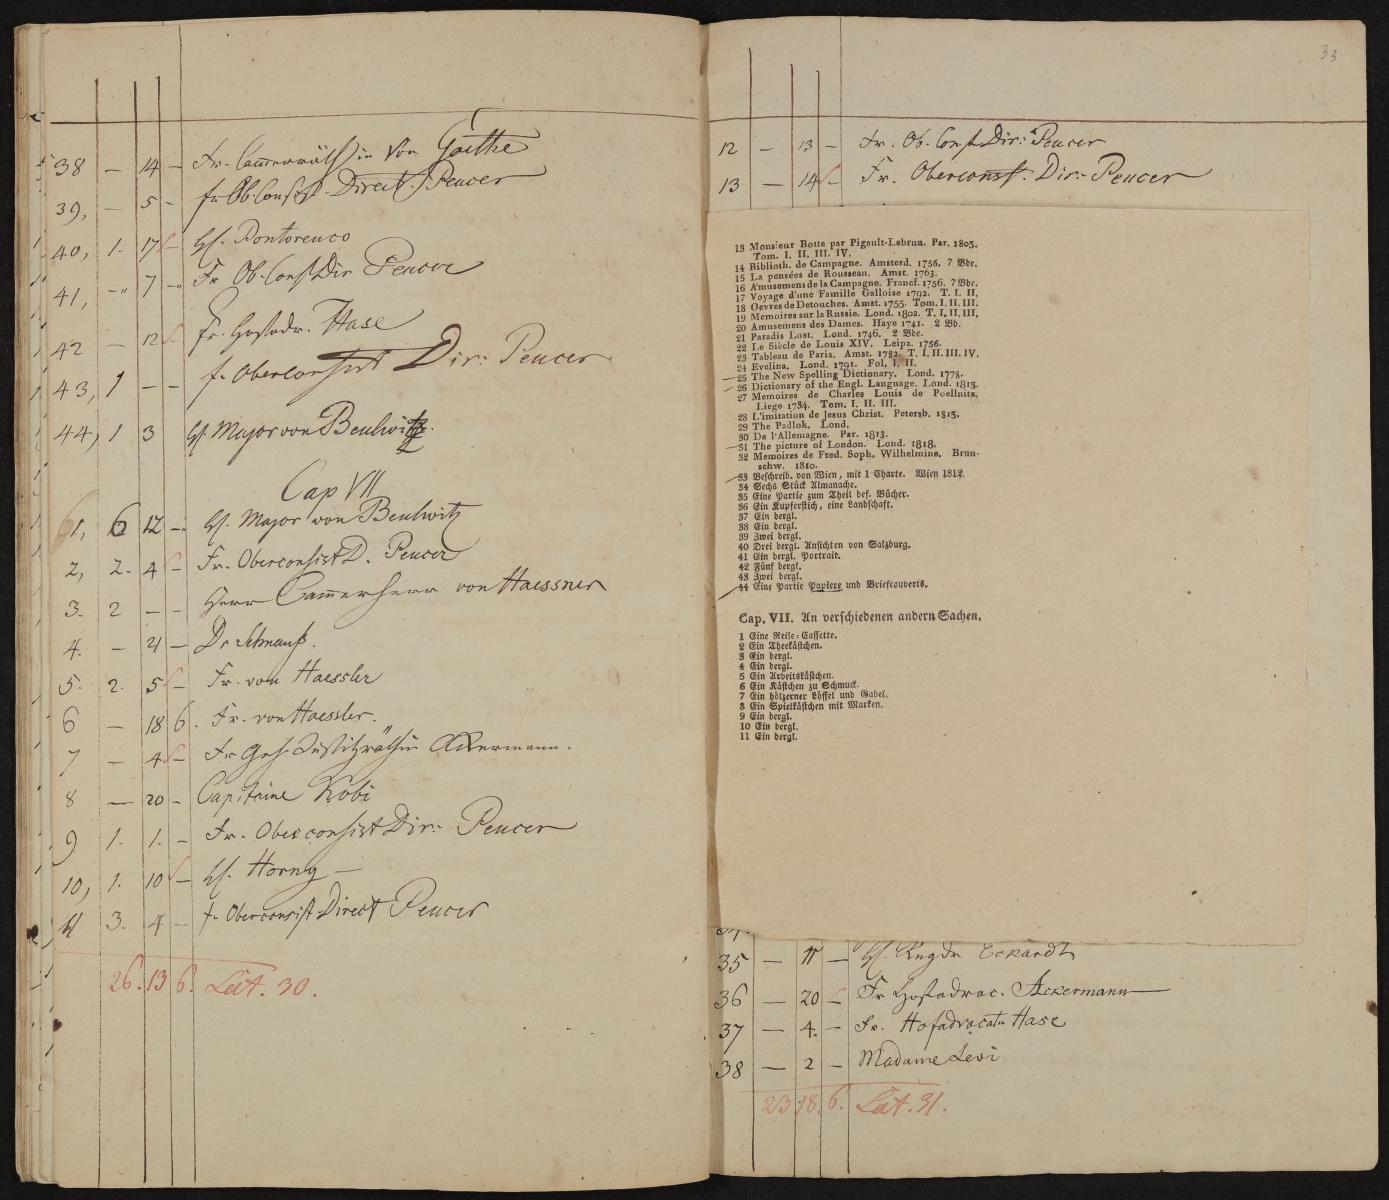 38 — 14 — Fr. Cammerräthin von Göthe
39, — 5 — fr Ob. Consist. Direct. Peucer
40, 1. 17 — H. Pontorenco
41, — 7 — Fr Ob. Const Dir Peucer
42 — 12 — Fr. Hofadv. Hase
43, 1 — — fr Oberconsist Dir: Peucer.
44, 1 3 H. Major von Beulwitz.
Cap VII
1, 6 12 — H. Major von Beulwitz
2, 2. 4 — Fr. Oberconsist D. Peucer
3. 2 — — Herr Cammerherr von Haessner
4. — 21 — Dr Schnauß.
5. 2. 5 — Fr. von Haessler
6 — 18 6. Fr. von Haessler.
7 — 4 — Fr Geh. Justitzräthin Ackermann.
8 — 20 — Capitaine Kobi
9 1. 1. — Fr. Oberconsist Dir: Peucer
10, 1. 10 — H. Horny —
11 3. 4 — fr Oberconsist Direct Peucer
26. 13 6. Lat. 30.
33
12 — 13 — Fr. Ob. Const Dir: Peucer
13 — 14 — Fr. Oberconst. Dir: Peucer
13 Monsieur Botte par Pigault-Lebrun. Par. 1803.
Tom. I. II. III. IV.
14 Biblioth. de Campagne. Amsterd. 1756. 7 Bde.
15 La pensées de Rousseau. Amst. 1763.
16 Amusemens de la Campagne. Francf. 1756. 7 Bde.
17 Voyage d'une Famille Galloise 1792. T. I. II.
18 Oevres de Detouches. Amst. 1755. Tom. I. II. III.
19 Memoires sur la Russie. Lond. 1802. T. I. II. III.
20 Amusemens des Dames. Haye 1741. 2 Bd.
21 Paradis Lost. Lond. 1746. 2 Bde.
22 Le Siècle de Louis XIV. Leipz. 1756.
23 Tableau de Paris. Amst. 1782. T. I. II. III. IV.
24 Evelina. Lond. 1791. Fol. I. II.
25 The New Spelling Dictionary. Lond. 1778.
26 Dictionary of the Engl. Language. Lond. 1815.
27 Memoires de Charles Louis de Poellnits.
Liege 1734. Tom. I. II. III.
28 L'imitation de Jesus Christ. Petersb. 1815.
29 The Padlok. Lond.
30 De l'Allemagne. Par. 1813.
31 The picture of London. Lond. 1818.
32 Memoires de Fred. Soph. Wilhelmine. Brun-
schw. 1810.
33 Beschreib. von Wien, mit 1 Charte. Wien 1812.
34 Sechs Stück Almanache.
35 Eine Partie zum Theil def. Bücher.
36 Ein Kupferstich, eine Landschaft.
37 Ein dergl.
38 Ein dergl.
39 Zwei dergl.
40 Drei dergl. Ansichten von Salzburg.
41 Ein dergl. Portrait.
42 Fünf dergl.
43 Zwei dergl.
44 Eine Partie Papiere und Briefcouverts.
Cap. VII. An verschiedenen andern Sachen.
1 Eine Reise-Cassette.
2 Ein Theekästchen.
3 Ein dergl.
4 Ein dergl.
5 Ein Arbeitskästchen.
6 Ein Kästchen zu Schmuck.
7 Ein hölzerner Löffel und Gabel.
8 Ein Spielkästchen mit Marken.
9 Ein dergl.
10 Ein dergl.
11 Ein dergl.
35 — 11 — H. Eckardt
36 — 20 — Fr Hofadvoc. Ackermann
37 — 4. — Fr. Hofadvocatn Hase
38 — 2 — Madame Levi
23 18. 6. Lat. 31.